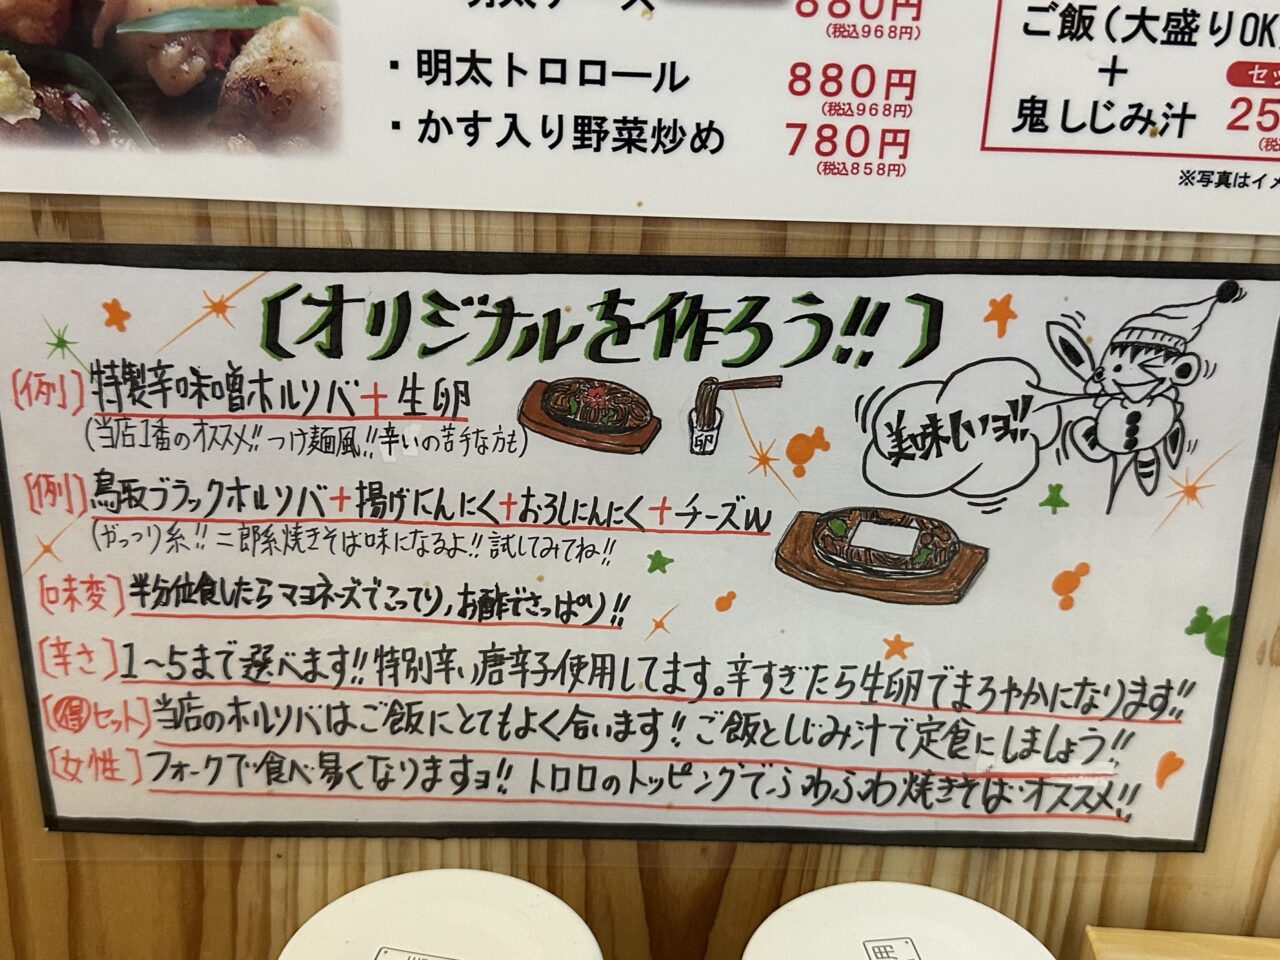 880円
(税込968円)
・明太トロロール
880円
(税込968円)
・かす入り野菜炒め
780円
(税込858円)
ご飯(大盛りOK
＋
鬼しじみ汁
25
※写真はイメ
〔オリジナルを作ろう!!〕
[例]特製辛味噌ホルソバ＋生卵
(当店1番のオススメ!!つけ麺風!!辛いの苦手な方も)
卵
美味しいヨ!!
[例]鳥取ブラックホルソバ＋揚げにんにく＋おろしにんにく＋チーズw
(がっつり系!!二郎系焼きそば味になるよ!!試してみてね!!
[味変]半分位食したらマヨネーズでこってり,お酢でさっぱり!!
[辛さ]1〜5まで選べます!!特別辛い唐辛子使用してます。辛すぎたら生卵でまろやかになります!!
[得セット]当店のホルソバはご飯にとてもよく合います!!ご飯としじみ汁で定食にしましょう!!
[女性]フォークで食べ易くなりますヨ!!トロロのトッピングでふわふわ焼きそばオススメ!!